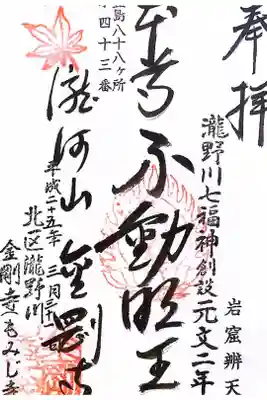 奉拝
岩窟辨天
瀧野川七福神創設元文二年
本尊不動明王
豊島八十八ヶ所
第四十三番
瀧河山金剛寺
平成二十五年三月三十一日
北区瀧野川
金剛寺もみじ寺